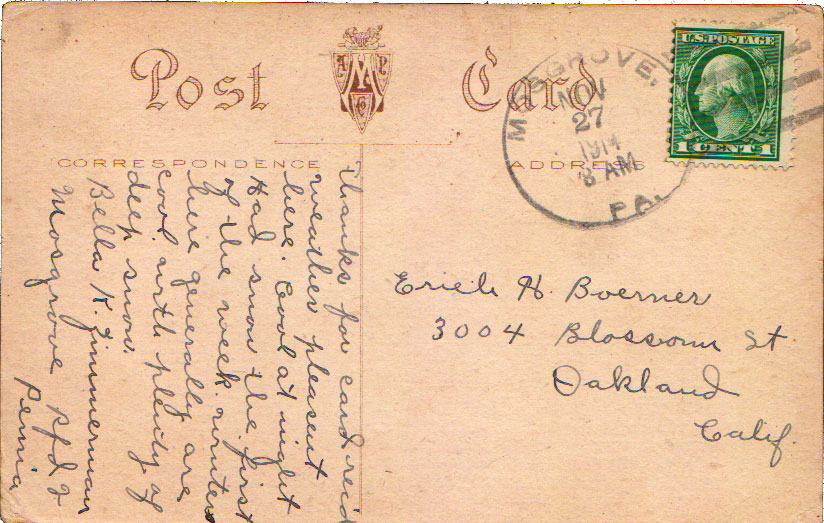 Post Card
A M P C
CORRESPONDENCE
ADDRESS
MOSGROVE,
NOV
27
1914
8 AM
PA.
U.S. POSTAGE
1 CENT 1
Thanks for card rec'd
weather pleasent
here. Cool at night
Had snow the first
of the week. winters
here generally are
cool with plenty of
deep snow.
Bella K. Zimmerman
Mosgrove Rfd 2
Penna
Erich H. Boerner
3004 Blossom St.
Oakland
Calif.